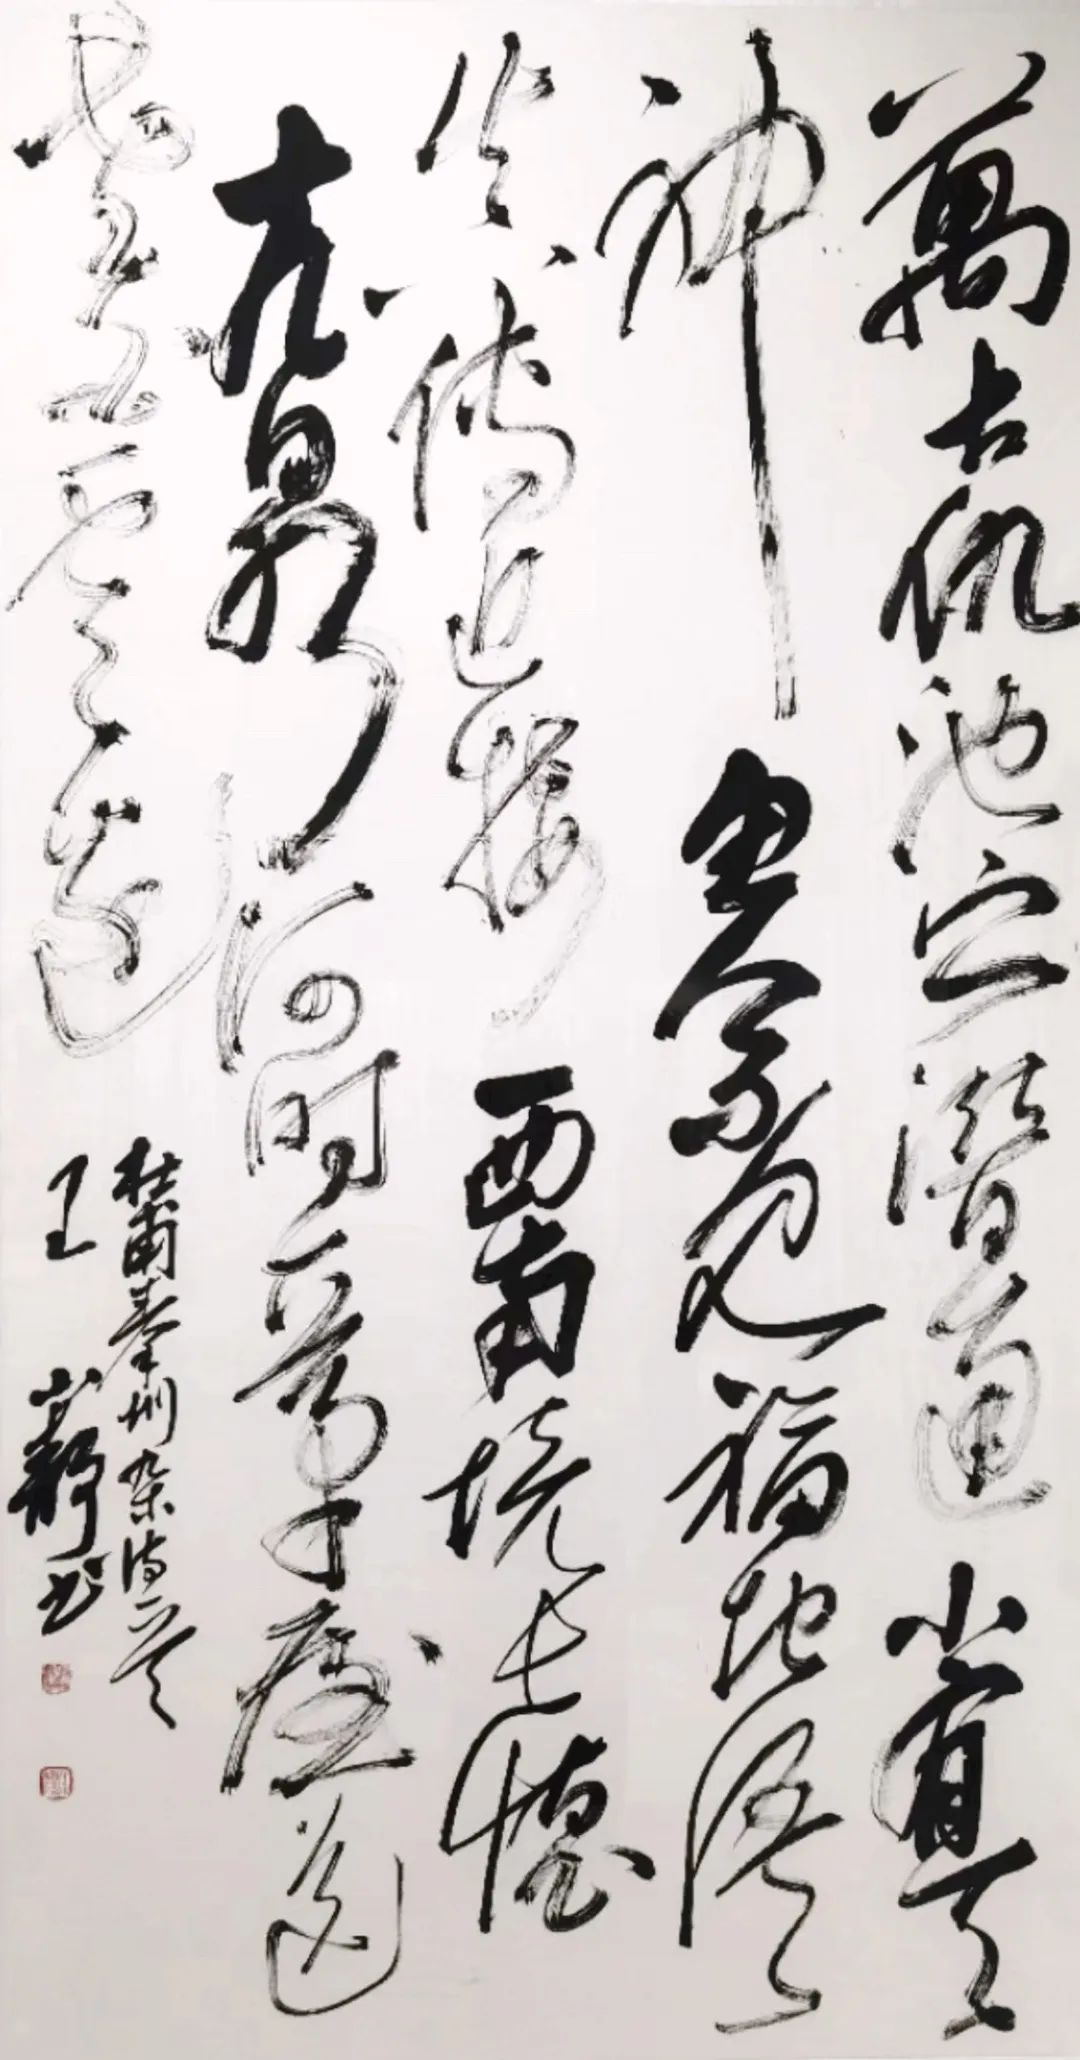 萬古仇池穴潛通小有天
神魚人不見福地語
真傳近接西南境長懷
十九泉何時一茅屋送
老白雲邊
杜甫秦州杂诗一首
王 静书